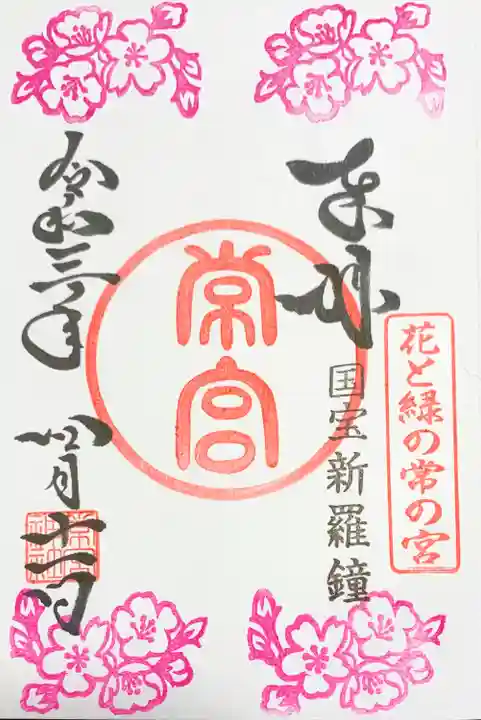 花と緑の常の宮
奉拝
国宝新羅鐘
常宮
令和三年
四月十一日
常宮神社